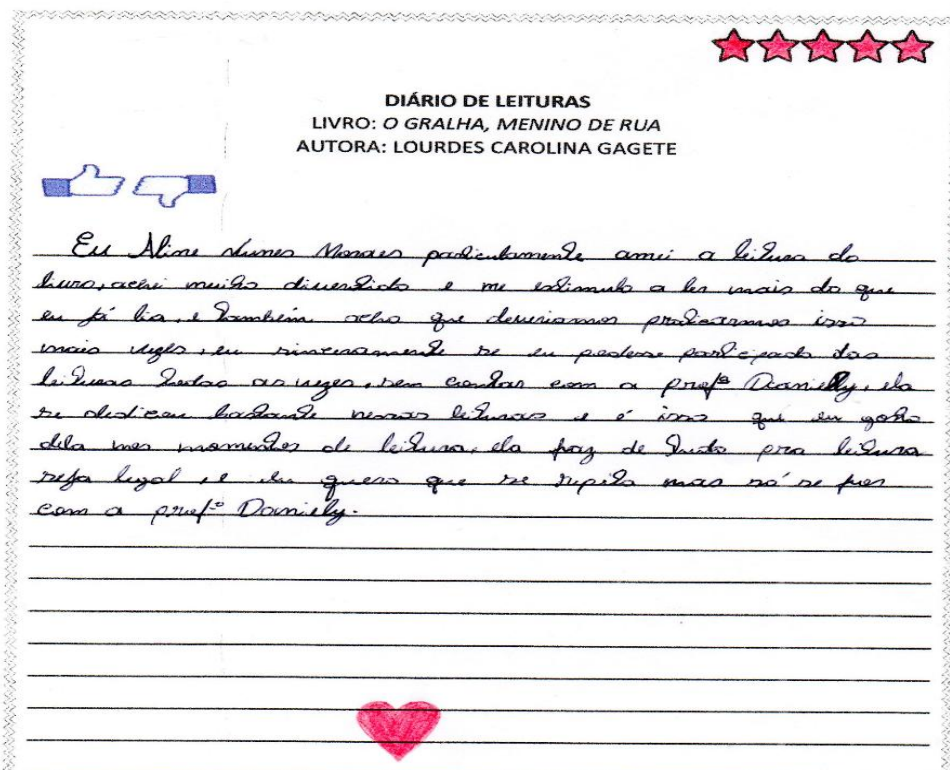 DIÁRIO DE LEITURAS
LIVRO: O GRALHA, MENINO DE RUA
AUTORA: LOURDES CAROLINA GAGETE
Eu Aline Nunes Moraes particulamente amei a leitura do
livro, achei muito divertido e me estimulo a ler mais do que
eu já lia, e também acho que deveriamos praticarmos isso
mais vezes, eu sinceramente se eu podesse das
leituras todas as vezes, sem contar com a profª Danielly, ela
se dedicou bastante nessas leituras e é isso que eu gosto
dela nos momentos de leitura, ela faz de tudo pra leitura
seja legal, e eu quero que se repita mas só se for
com a profª Daniely.